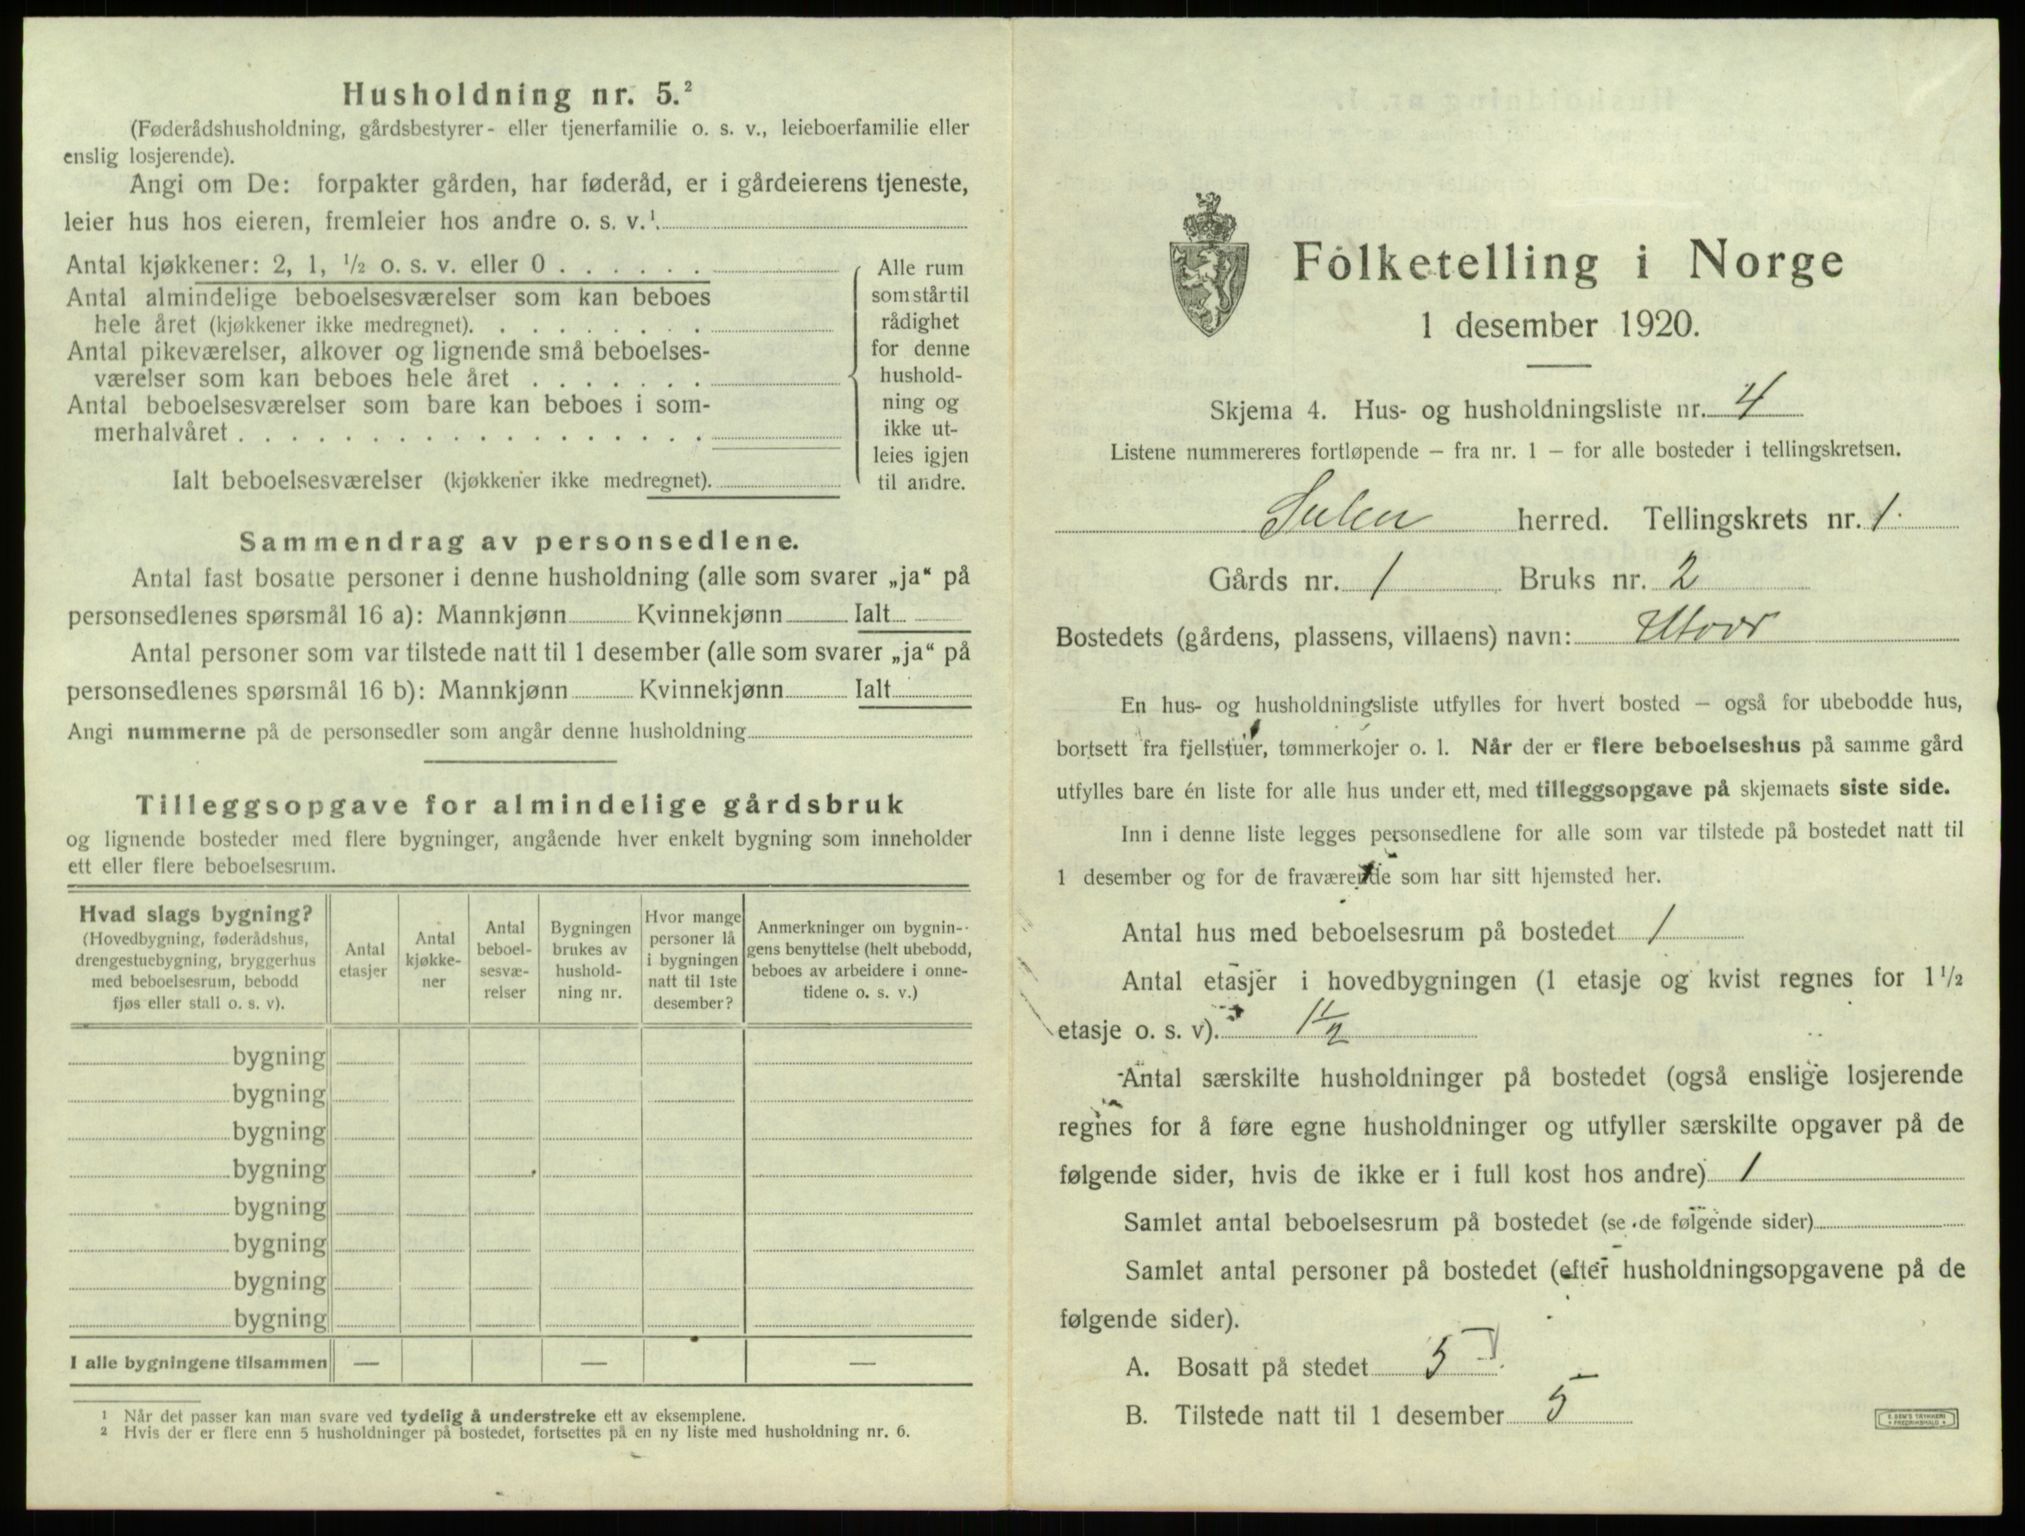 Husholdning nr. 5.²
(Føderådshusholdning, gårdsbestyrer- eller tjenerfamilie o. s. v., leieboerfamilie eller
enslig losjerende).
Angi om De: forpakter gården, har føderåd, er i gårdeierens tjeneste,
leier hus hos eieren, fremleier hos andre o. s. v.¹.
Antal kjøkkener: 2, 1, ½ o. s. v. eller 0 . . . . . .
Antal almindelige beboelsesværelser som kan beboes
hele året (kjøkkener ikke medregnet). . . . . . . . .
Antal pikeværelser, alkover og lignende små beboelses-
værelser som kan beboes hele året . . . . . . .
Antal beboelsesværelser som bare kan beboes i som-
merhalvåret . . . . . . . . . . . . . . . . . .
Ialt beboelsesværelser (kjøkkener ikke medregnet).
Alle rum
som står til
rådighet
for denne
hushold-
ning og
ikke ut-
leies igjen
til andre.
Sammendrag av personsedlene.
Antal fast bosatte personer i denne husholdning (alle som svarer „ja“ på
personsedlenes spørsmål 16 a): Mannkjønn Kvinnekjønn Ialt
Antal personer som var tilstede natt til 1 desember (alle som svarer „ja“ på
personsedlenes spørsmål 16 b): Mannkjønn Kvinnekjønn Ialt
Angi nummerne på de personsedler som angår denne husholdning
Tilleggsopgave for almindelige gårdsbruk
og lignende bosteder med flere bygninger, angående hver enkelt bygning som inneholder
ett eller flere beboelsesrum.
Hvad slags bygning?
(Hovedbygning, føderådshus,
drengestuebygning, bryggerhus
med beboelsesrum, bebodd
fjøs eller stall o. s. v).
Antal
etasjer
Antal
kjøkke-
ner
Antal
beboel-
sesvæ-
relser
Bygningen
brukes av
hushold-
ning nr.
Hvor mange
personer lå
i bygningen
natt til 1ste
desember?
Anmerkninger om bygnin-
gens benyttelse (helt ubebodd,
beboes av arbeidere i onne-
tidene o. s. v.)
bygning
bygning
bygning
bygning
bygning
bygning
bygning
bygning
I alle bygningene tilsammen — — —
¹ Når det passer kan man svare ved tydelig å understreke ett av eksemplene.
² Hvis der er flere enn 5 husholdninger på bostedet, fortsettes på en ny liste med husholdning nr. 6.
Folketelling i Norge
1 desember 1920.
Skjema 4. Hus- og husholdningsliste nr. 4
Listene nummereres fortløpende – fra nr. 1 – for alle bosteder i tellingskretsen.
Sulen herred. Tellingskrets nr. 1.
Gårds nr. 1 Bruks nr. 2
Bostedets (gårdens, plassens, villaens) navn: Utvær
En hus- og husholdningsliste utfylles for hvert bosted – også for ubebodde hus,
bortsett fra fjellstuer, tømmerkojer o. l. Når der er flere beboelseshus på samme gård
utfylles bare én liste for alle hus under ett, med tilleggsopgave på skjemaets siste side.
Inn i denne liste legges personsedlene for alle som var tilstede på bostedet natt til
1 desember og for de fraværende som har sitt hjemsted her.
Antal hus med beboelsesrum på bostedet 1
Antal etasjer i hovedbygningen (1 etasje og kvist regnes for 1½
etasje o. s. v). 1½
Antal særskilte husholdninger på bostedet (også enslige losjerende
regnes for å føre egne husholdninger og utfyller særskilte opgaver på de
følgende sider, hvis de ikke er i full kost hos andre) 1
Samlet antal beboelsesrum på bostedet (se de følgende sider)
Samlet antal personer på bostedet (efter husholdningsopgavene på de
følgende sider).
A. Bosatt på stedet 5
B. Tilstede natt til 1 desember 5